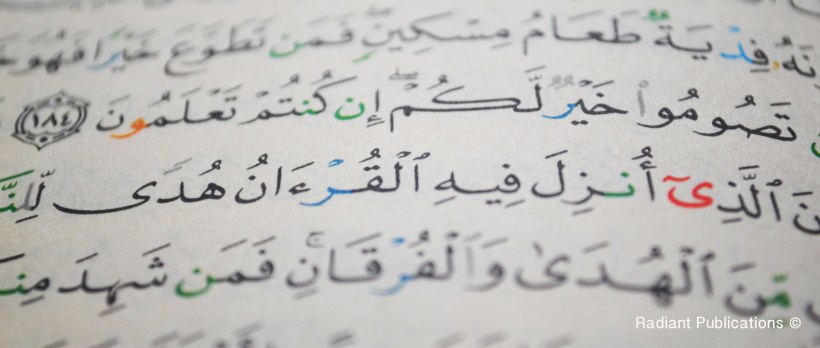 فِدْيَةٌ طَعَامُ مِسْكِينٍ ۖ فَمَن تَطَوَّعَ خَيْرًا فَهُوَ
تَصُومُوا۟ خَيْرٌ لَّكُمْ ۖ إِن كُنتُمْ تَعْلَمُونَ ١٨٤
ٱلَّذِىٓ أُنزِلَ فِيهِ ٱلْقُرْءَانُ هُدًى لِّلنَّ
مِّنَ ٱلْهُدَىٰ وَٱلْفُرْقَانِ ۚ فَمَن شَهِدَ مِن
Radiant Publications ©